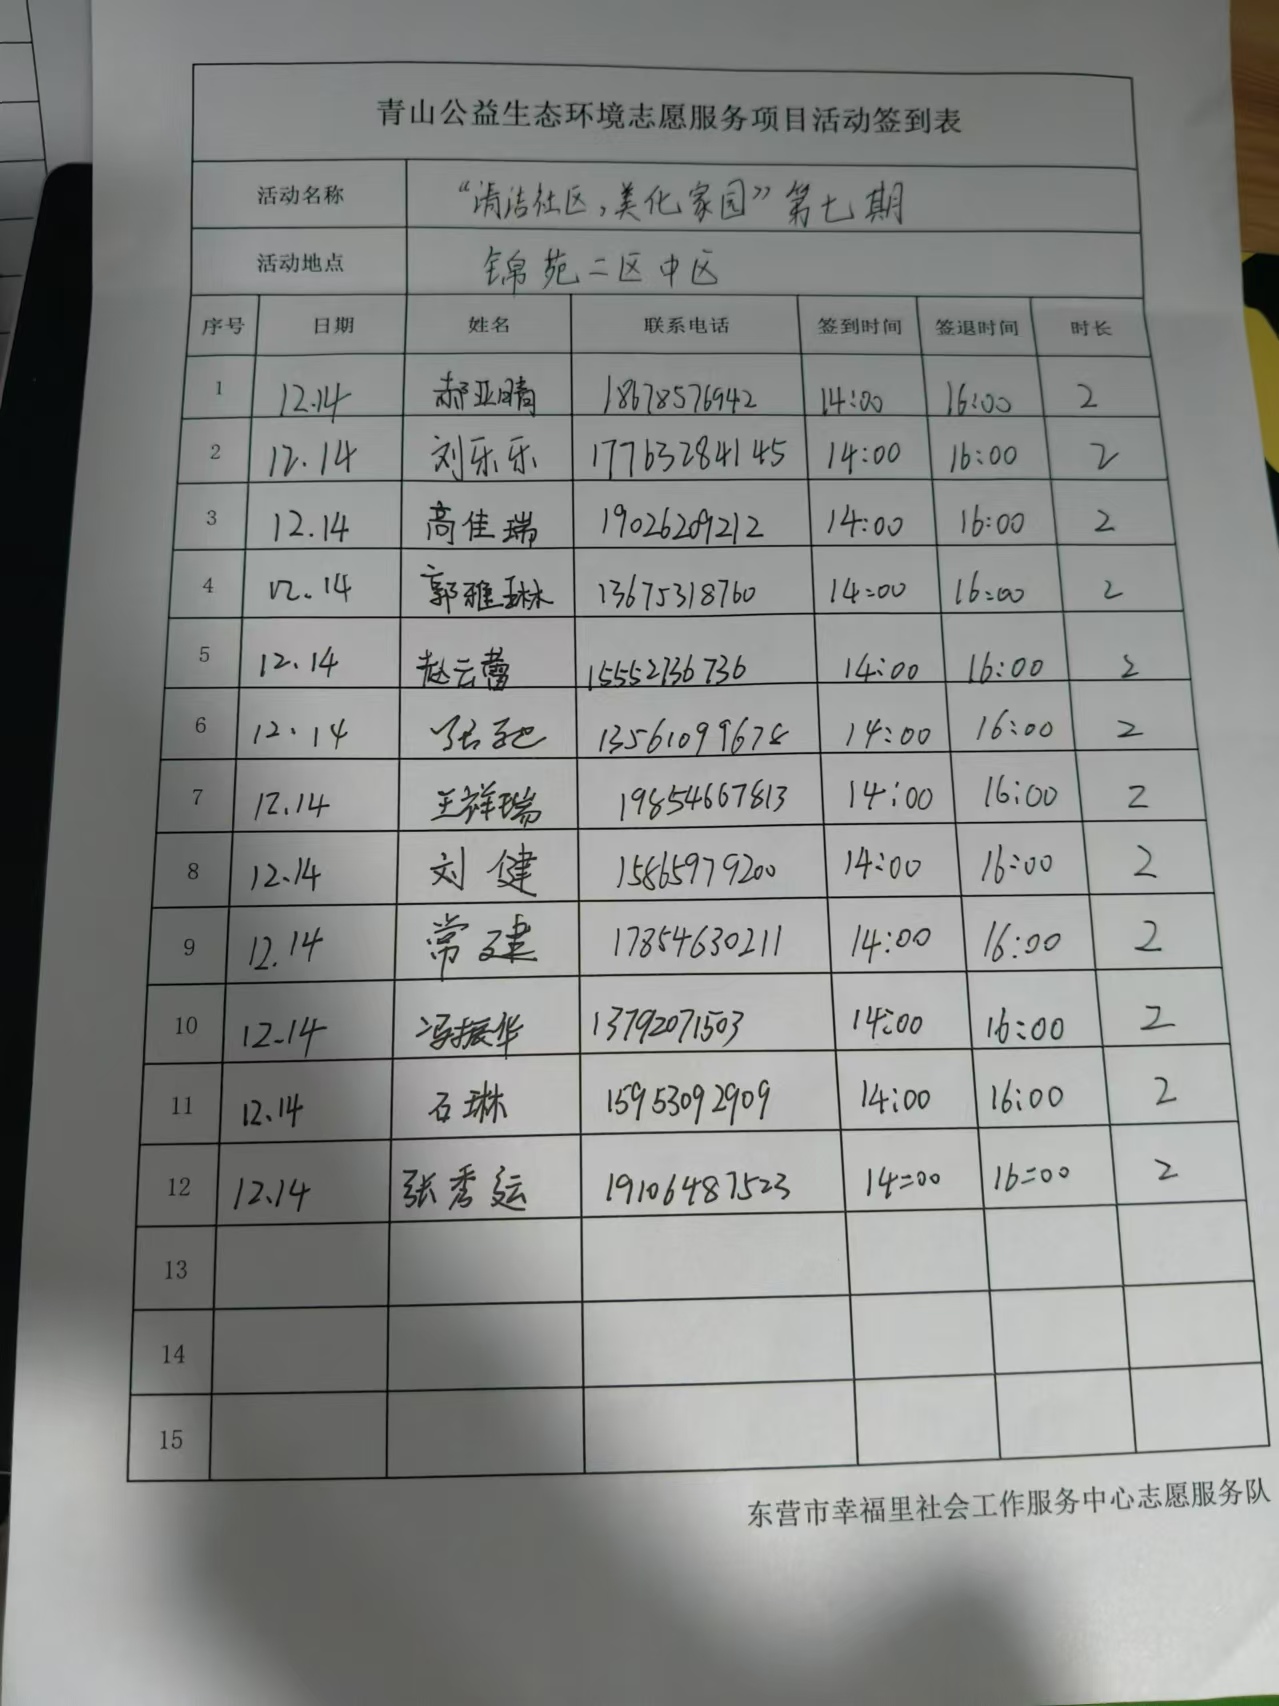 青山公益生态环境志愿服务项目活动签到表
活动名称 “清洁社区，美化家园”第七期
活动地点 锦苑二区中区
序号 日期 姓名 联系电话 签到时间 签退时间 时长
1 12.14 郝亚晴 18678576942 14:00 16:00 2
2 12.14 刘乐乐 17763284145 14:00 16:00 2
3 12.14 高佳瑞 19026209212 14:00 16:00 2
4 12.14 郭雅琳 13675318760 14:00 16:00 2
5 12.14 赵云蕾 15552736736 14:00 16:00 2
6 12.14 张 13561099678 14:00 16:00 2
7 12.14 王祥瑞 19854667813 14:00 16:00 2
8 12.14 刘健 15865979200 14:00 16:00 2
9 12.14 常建 17854630211 14:00 16:00 2
10 12.14 冯振华 13792071503 14:00 16:00 2
11 12.14 石琳 15953092909 14:00 16:00 2
12 12.14 张秀运 19106487523 14:00 16:00 2
13
14
15
东营市幸福里社会工作服务中心志愿服务队